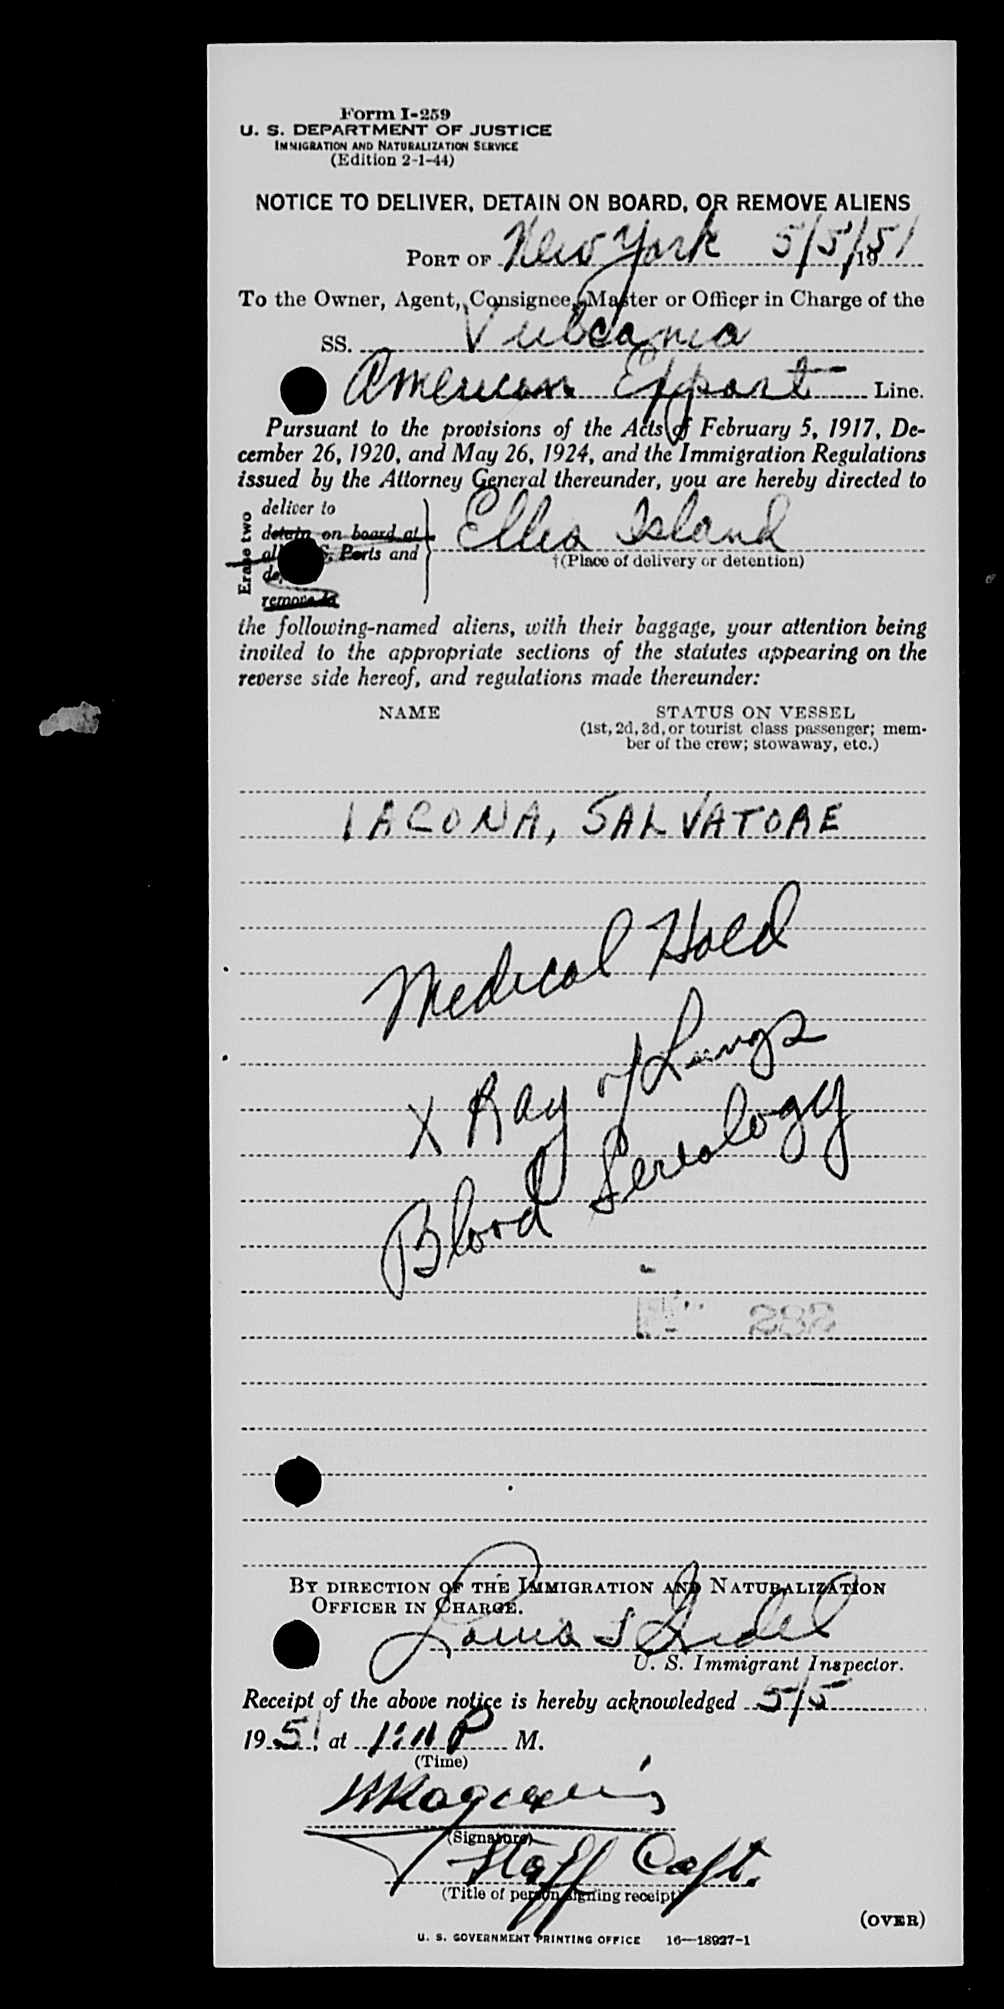 Form I-259
U. S. DEPARTMENT OF JUSTICE
IMMIGRATION AND NATURALIZATION SERVICE
(Edition 2-1-44)
NOTICE TO DELIVER, DETAIN ON BOARD, OR REMOVE ALIENS
PORT OF New York 5/5/1951
To the Owner, Agent, Consignee, Master or Officer in Charge of the
SS. Vulcania
American Export Line.
Pursuant to the provisions of the Acts of February 5, 1917, De-
cember 26, 1920, and May 26, 1924, and the Immigration Regulations
issued by the Attorney General thereunder, you are hereby directed to
Erase two
deliver to
detain on board at
Ports and
remove to
Ellis Island
†(Place of delivery or detention)
the following-named aliens, with their baggage, your attention being
invited to the appropriate sections of the statutes appearing on the
reverse side hereof, and regulations made thereunder:
NAME STATUS ON VESSEL
(1st, 2d, 3d, or tourist class passenger; mem-
ber of the crew; stowaway, etc.)
IACONA, SALVATORE
Medical Hold
X Ray of Lungs
Blood Serealogy
282
BY DIRECTION OF THE IMMIGRATION AND NATURALIZATION
OFFICER IN CHARGE.
Louis
U. S. Immigrant Inspector.
Receipt of the above notice is hereby acknowledged 5/5
1951, at 1:11 P M.
(Time)
(Signature)
Staff Capt.
(Title of person signing receipt)
(OVER)
U. S. GOVERNMENT PRINTING OFFICE 16—18927-1